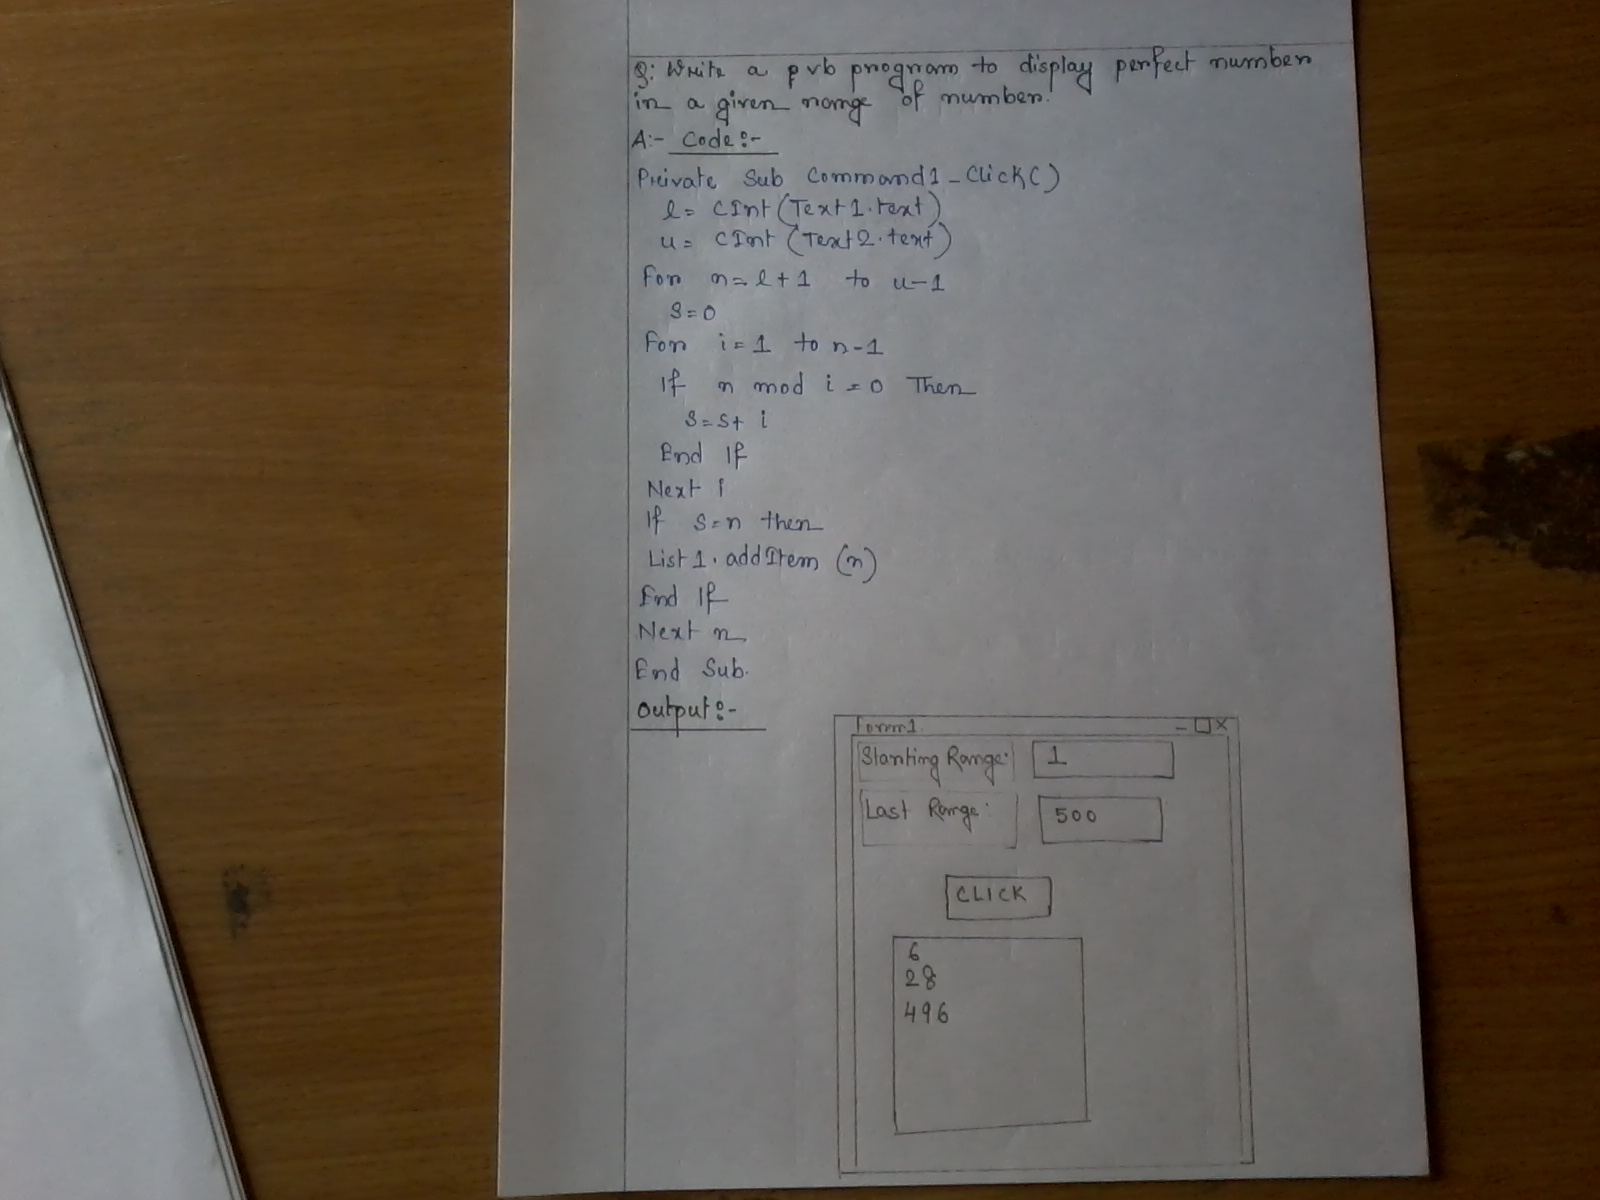 Q: Write a pvb program to display perfect number
in a given range of number.
A:- Code:-
Private Sub Command1_Click()
l = CInt(Text1.text)
u = CInt(Text2.text)
For n=l+1 to u-1
S=0
For i=1 to n-1
If n mod i=0 Then
S=S+ i
End If
Next i
If S=n then
List1.addItem (n)
End If
Next n
End Sub.
Output:-
Form1 - □ X
Starting Range: 1
Last Range: 500
CLICK
6
28
496